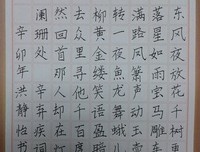 东风夜放花千树
落星如雨宝马雕车
满路风箫声动玉
转一夜鱼龙舞蛾儿
柳黄金缕笑语盈盈
去众里寻他千百
然回首那人却在
阑珊处辛弃疾
辛卯年洪静怡书